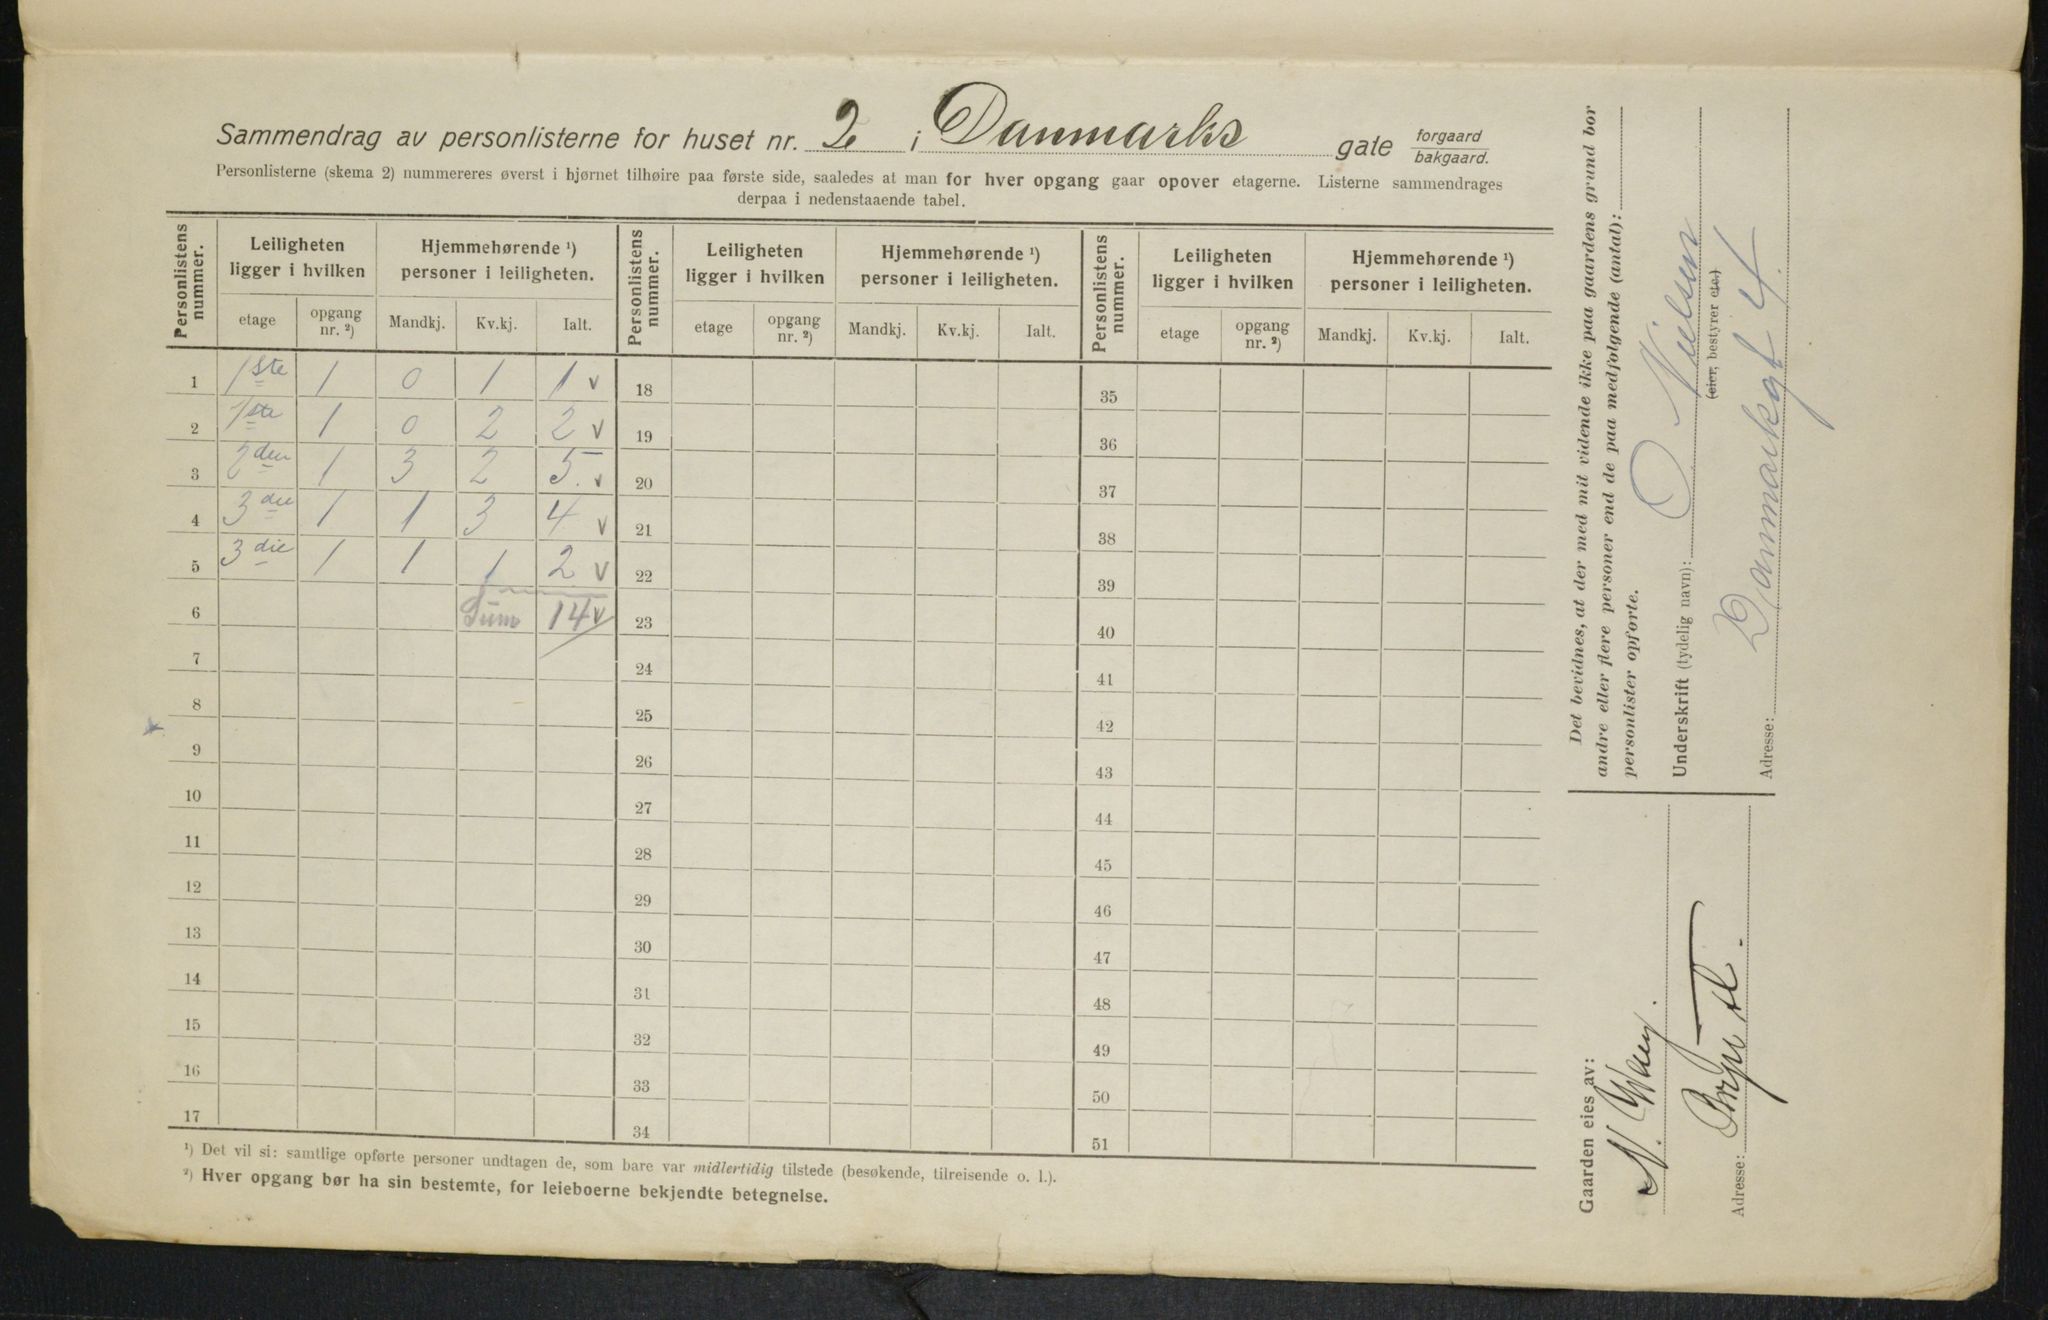 Sammendrag av personlisterne for huset nr. 2 i Danmarks gate forgaard bakgaard.
Personlisterne (skema 2) nummereres øverst i hjørnet tilhøire paa første side, saaledes at man for hver opgang gaar opover etagerne. Listerne sammendrages
derpaa i nedenstaaende tabel.
Personlistens nummer. Leiligheten ligger i hvilken Hjemmehørende ¹) personer i leiligheten. Personlistens nummer. Leiligheten ligger i hvilken Hjemmehørende ¹) personer i leiligheten. Personlistens nummer. Leiligheten ligger i hvilken Hjemmehørende ¹) personer i leiligheten.
etage opgang nr. ²) Mandkj. Kv.kj. Ialt. etage opgang nr. ²) Mandkj. Kv.kj. Ialt. etage opgang nr. ²) Mandkj. Kv.kj. Ialt.
1 1ste 1 0 1 1 v 18 35
2 1ste 1 0 2 2 v 19 36
3 2den 1 3 2 5. v 20 37
4 3die 1 1 3 4 v 21 38
5 3die 1 1 1 2 v 22 39
6 Sum 14 v 23 40
7 24 41
8 25 42
9 26 43
10 27 44
11 28 45
12 29 46
13 30 47
14 31 48
15 32 49
16 33 50
17 34 51
¹) Det vil si: samtlige opførte personer undtagen de, som bare var midlertidig tilstede (besøkende, tilreisende o. l.).
²) Hver opgang bør ha sin bestemte, for leieboerne bekjendte betegnelse.
Det bevidnes, at der med mit vidende ikke paa gaardens grund bor
andre eller flere personer end de paa medfølgende (antal):
personlister opførte.
Underskrift (tydelig navn): O Nielsen
(eier, bestyrer etc.)
Adresse: Danmarksgt 4.
Gaarden eies av:
N.
Adresse: